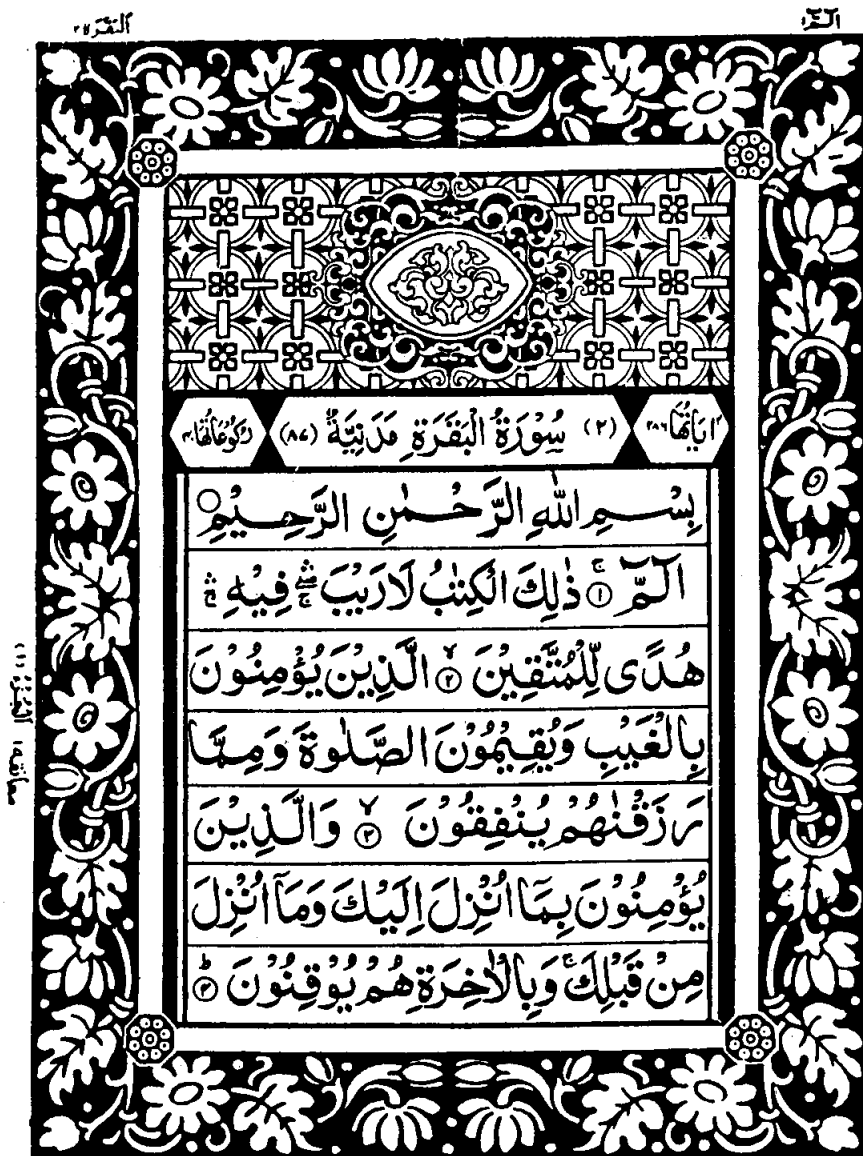 الٓمّٓ ١ البقرة ٢
اٰيَاتُهَا ٢٨٦ (٢) سُوْرَةُ الْبَقَرَةِ مَدَنِيَّةٌ (٨٧) رُكُوْعَاتُهَا ٤٠
بِسْمِ اللّٰهِ الرَّحْمٰنِ الرَّحِيْمِ ○
الٓمّٓ ۚ ﴿١﴾ ذٰلِكَ الْكِتٰبُ لَا رَيْبَ ۛۖۚ فِيْهِ ۛۚ
هُدًى لِّلْمُتَّقِيْنَ ۙ ﴿٢﴾ الَّذِيْنَ يُؤْمِنُوْنَ
بِالْغَيْبِ وَيُقِيْمُوْنَ الصَّلٰوةَ وَمِمَّا
رَزَقْنٰهُمْ يُنْفِقُوْنَ ۙ ﴿٣﴾ وَالَّذِيْنَ
يُؤْمِنُوْنَ بِمَاۤ اُنْزِلَ اِلَيْكَ وَمَاۤ اُنْزِلَ
مِنْ قَبْلِكَ ۚ وَبِالْاٰخِرَةِ هُمْ يُوْقِنُوْنَ ؕ ﴿٤﴾